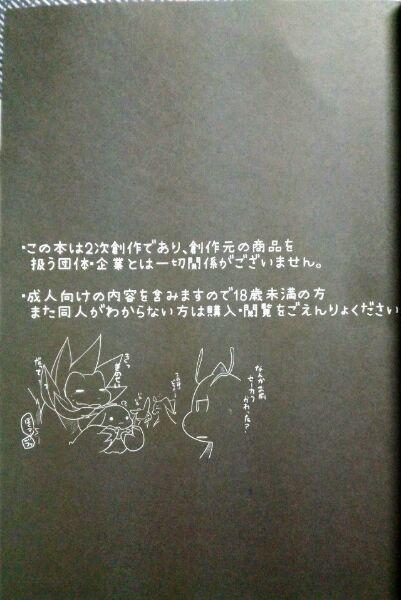 ・この本は2次創作であり、創作元の商品を
扱う団体・企業とは一切関係がございません。
・成人向けの内容を含みますので18歳未満の方
また同人がわからない方は購入・閲覧をごえんりょください
なんかお前
せーかく
かわった?